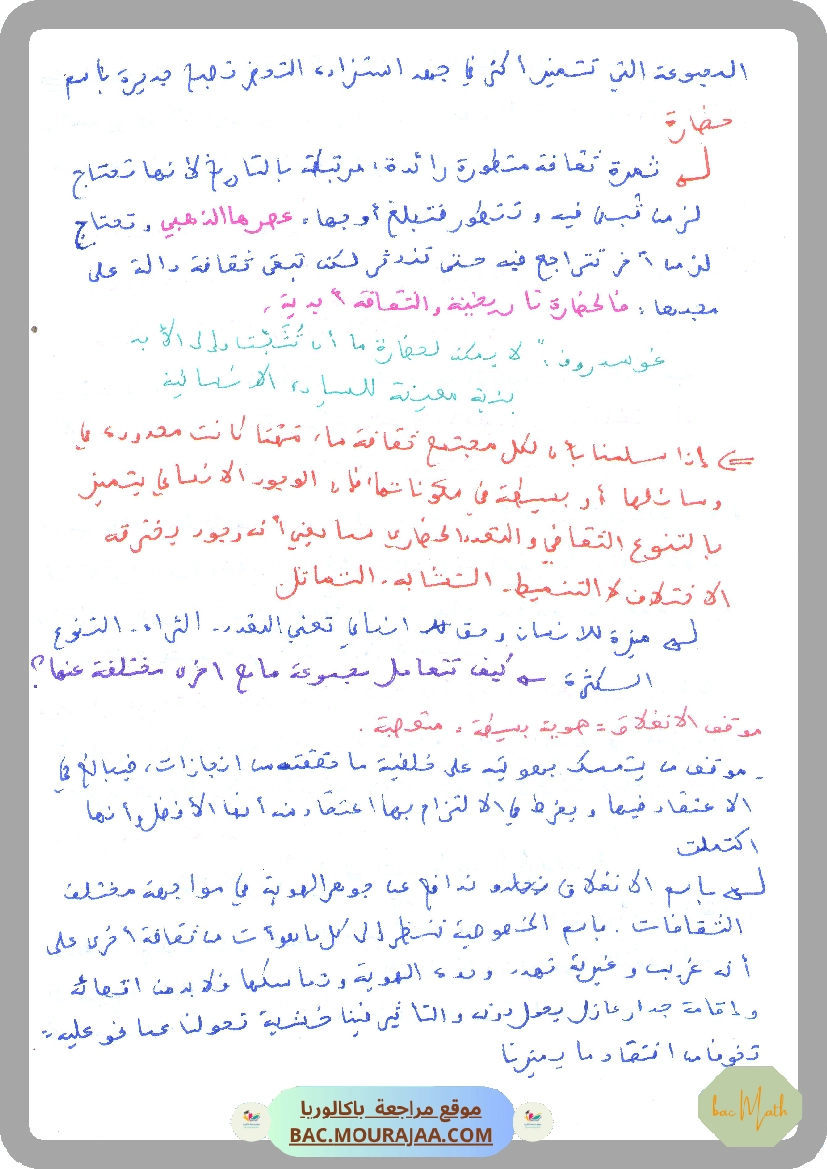 المجموعة التي تتميز أكثر في جهد استنزاف التوحش تصبح جديرة باسم
حضارة
ثمرة ثقافة متطورة رائدة، مرتبطة بالتاريخ لأنها تحتاج
لزمن تُبنى فيه و تتطور فتبلغ أوجها، عصرها الذهبي و تحتاج
لزمن آخر تتراجع فيه حتى تندثر لكن تبقى ثقافة دالة على
مجدها: فالحضارة تاريخية والثقافة أبدية.
غوسدروف: "لا يمكن لحضارة ما أن تُثَبِّت إلى الأبد
بنية مميزة للحياة الإنسانية
⇐ إذا سلمنا بأن لكل مجتمع ثقافة ما، مهما كانت محدودة في
وسائلها أو بسيطة في مكوناتها، فإن الوجود الإنساني يتميز
بالتنوع الثقافي والتعدد الحضاري مما يعني أنه وجود يخترقه
الاختلاف لا التنميط، التشابه، التماثل
ميزة للإنسان وحق انساني تعني التعدد، الثراء، التنوع
الكثرة كيف تتعامل مجموعة ما مع أخرى مختلفة عنها؟
موقف الانغلاق = هوية بسيطة، متعصبة.
- موقف من يتمسك بهويته على خلفية ما حققته من انجازات، فيبالغ في
الاعتقاد فيها و يفرط في الالتزام بها اعتقادا منه أنها الأفضل وأنها
اكتملت
باسم الانغلاق ندافع عن جوهر الهوية في مواجهة مختلف
الثقافات. باسم الخصوصية ننظر إلى كل ما هو آت من ثقافة أخرى على
أنه غريب و غيرية تهدد وحدة الهوية و تماسكها فلا بد من
و إقامة جدار عازل يحول دونه والتأثير فينا خشية تحولنا عما نحن عليه =
تخوفا من افتقاد ما يميزنا
موقع مراجعة باكالوريا
BAC.MOURAJAA.COM
bac Math